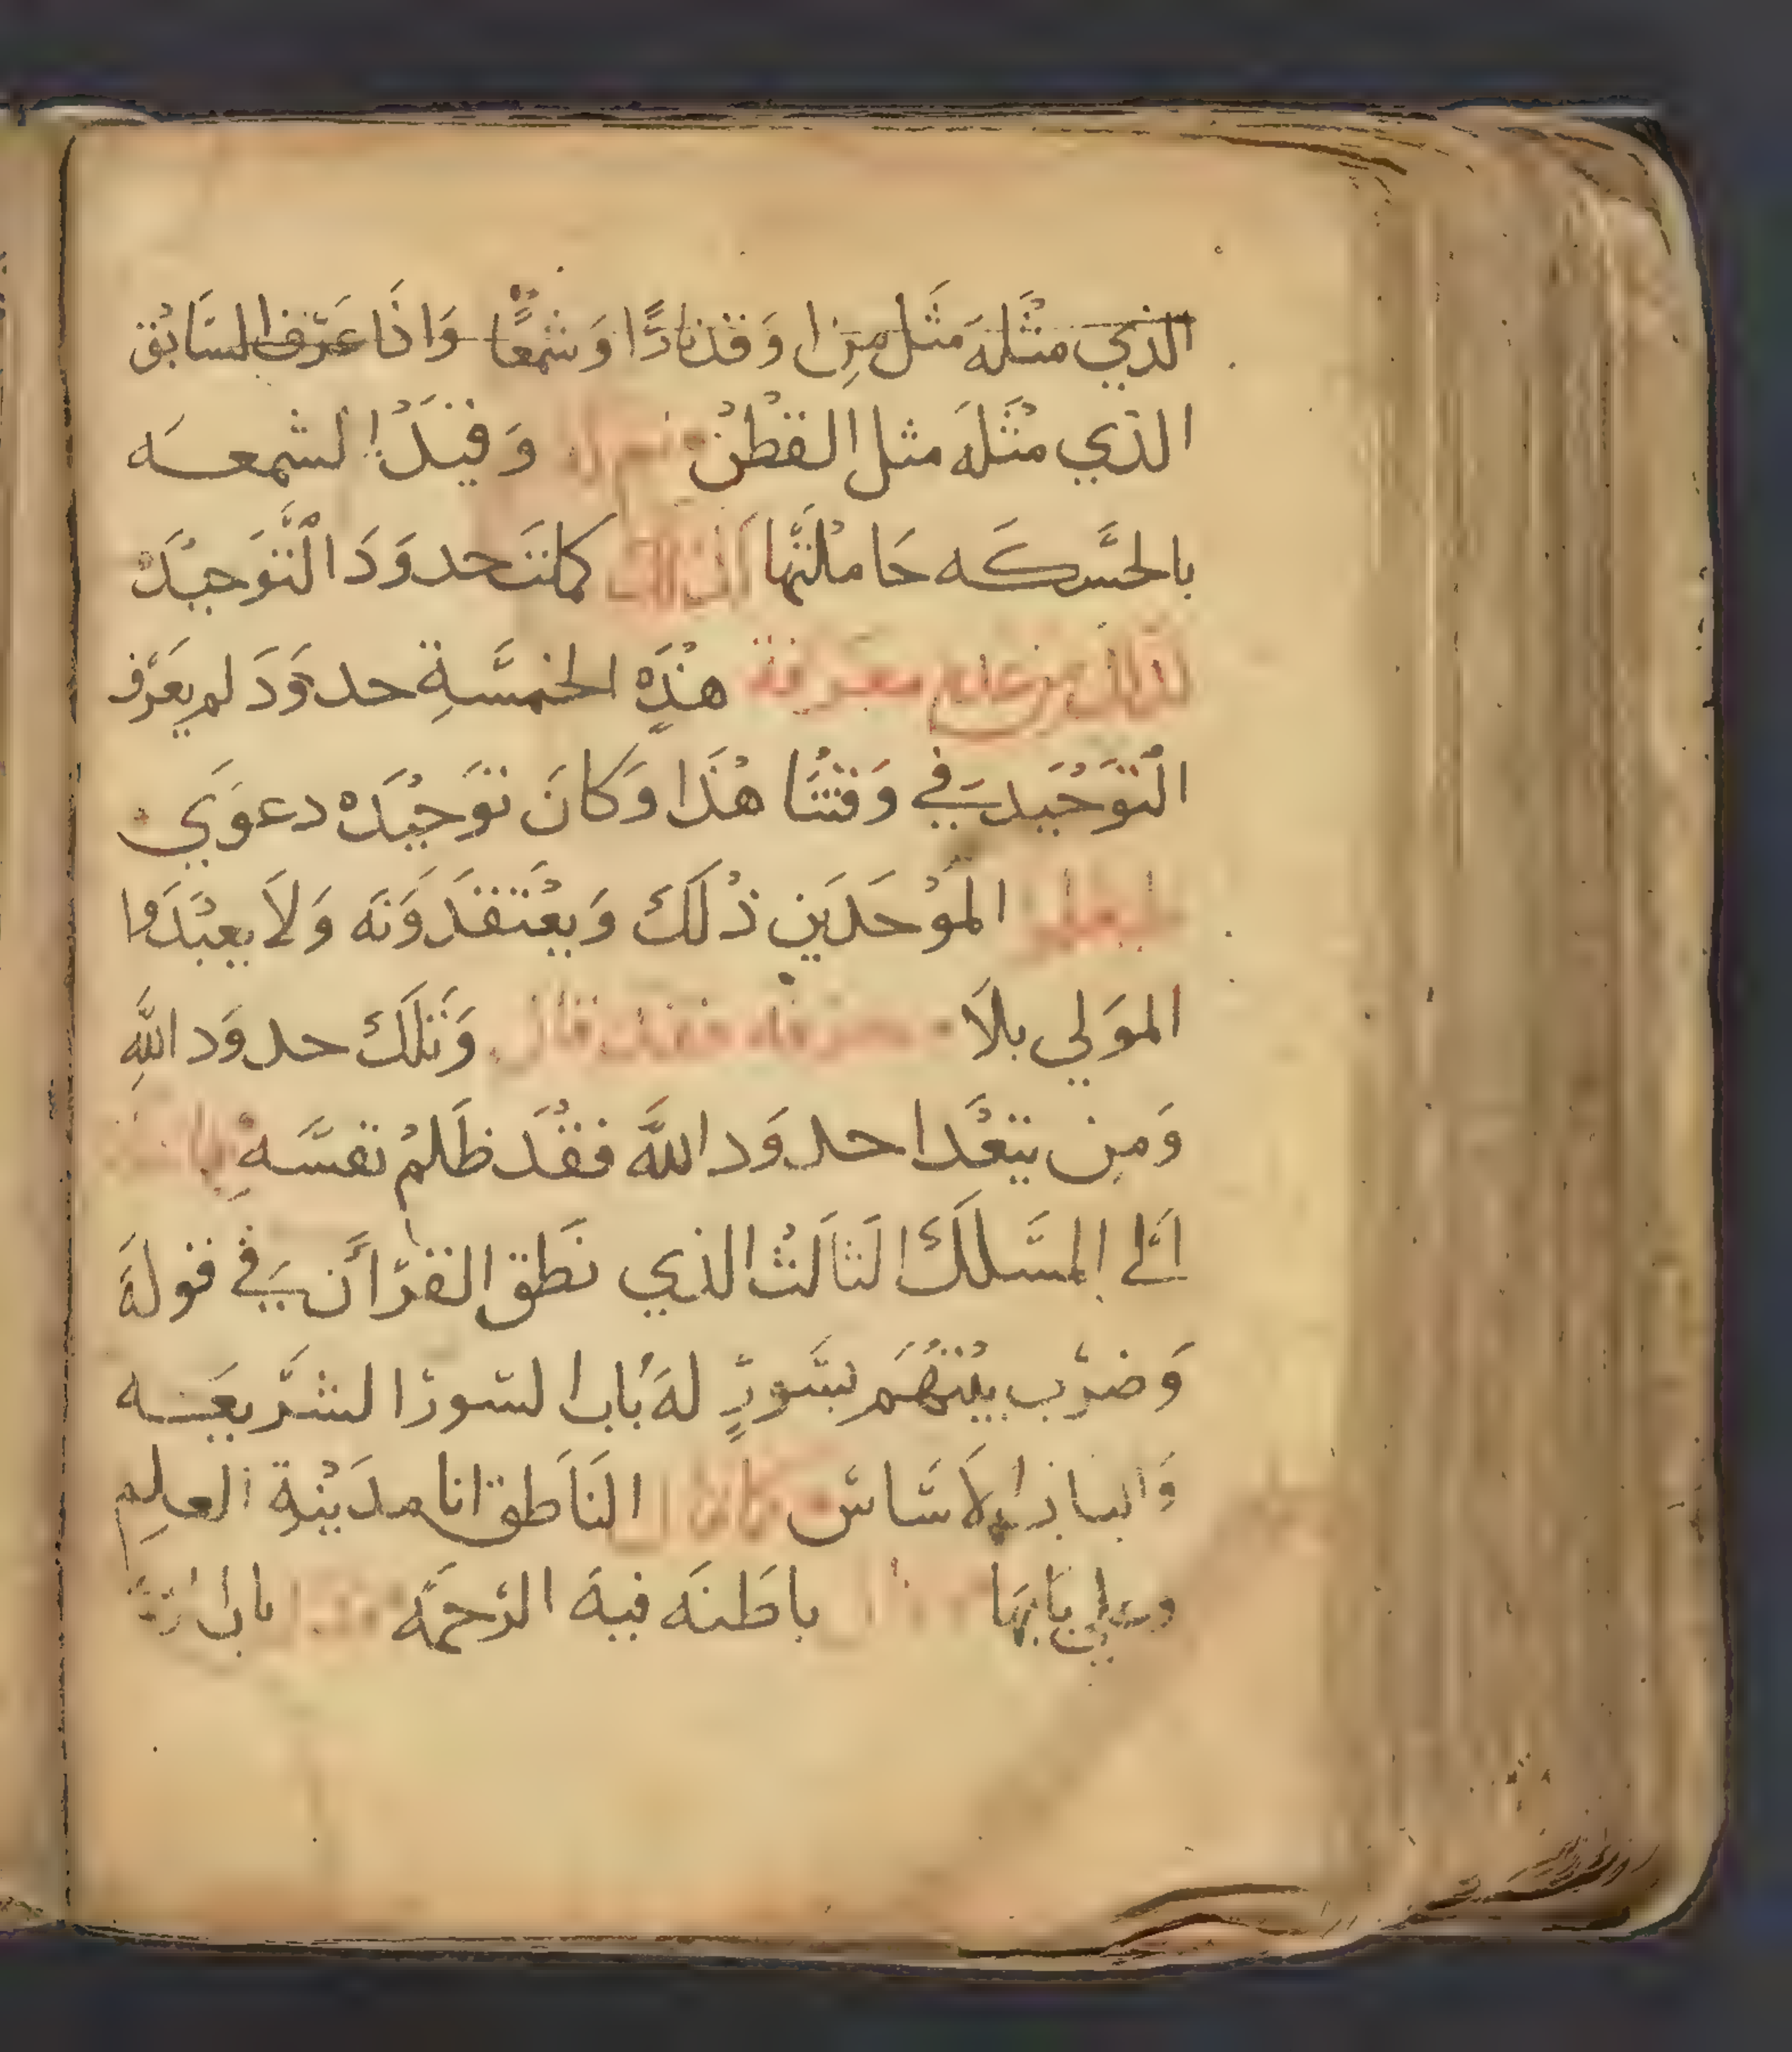 الذي مثله مثل من اوقد نارًا وشمعًا واذا عرف السابق
الذي مثله مثل القطن وقبل الشمعه
بالحسكه حاملتها كملت حدود التوحيد
لذلك من عدم معرفة هذه الخمسة حدود لم يعرف
التوحيد في وقتنا هذا وكان توحيده دعوي
الموحدين ذلك ويعتقدونه ولا يعبدوا
المولي بلا معرفه فقد قال وتلك حدود الله
ومن يتعدا حدود الله فقد ظلم نفسه
الى المسلك الثالث الذي نطق القرأن في قوله
وضرب بينهم بسورٍ له باب السور الشريعه
والباب الاساس كما قال الناطق انا مدينة العلم
وعلي بابها باطنه فيه الرحمه باب